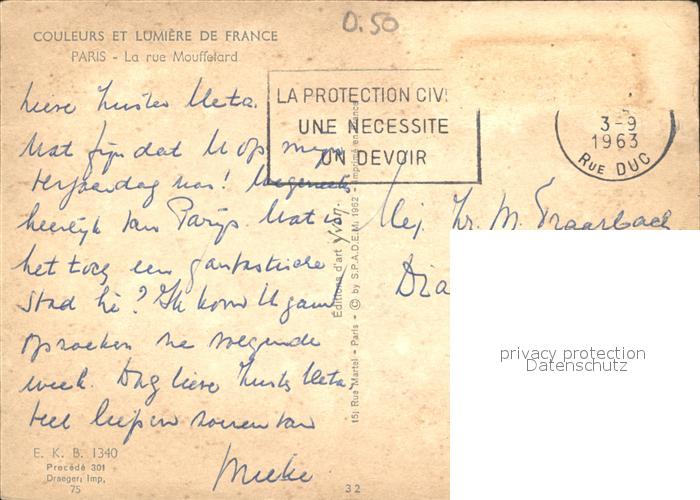 COULEURS ET LUMIÈRE DE FRANCE
PARIS - La rue Mouffetard
0.50
LA PROTECTION CIVI
UNE NECESSITE
UN DEVOIR
3-9
1963
RUE DUC
Lieve Zuster Meta.
Wat fijn dat U op mijn
verjaardag was!
heerlijk van Parijs. Wat is
het toch een fantastische
stad hè? Ik kom U gauw
opzoeken de volgende
week. Dag lieve Zuster Meta,
veel liefs en zoenen van
Mieke
Mej. Zr. M. Traarbach
Dia
Éditions d'art Yvon.
15, Rue Martel - Paris - © by S.P.A.D.E.M. 1962 - Imprimé en France
E. K. B. 1340
Procédé 301
Draeger, Imp.
75
32
privacy protection
Datenschutz